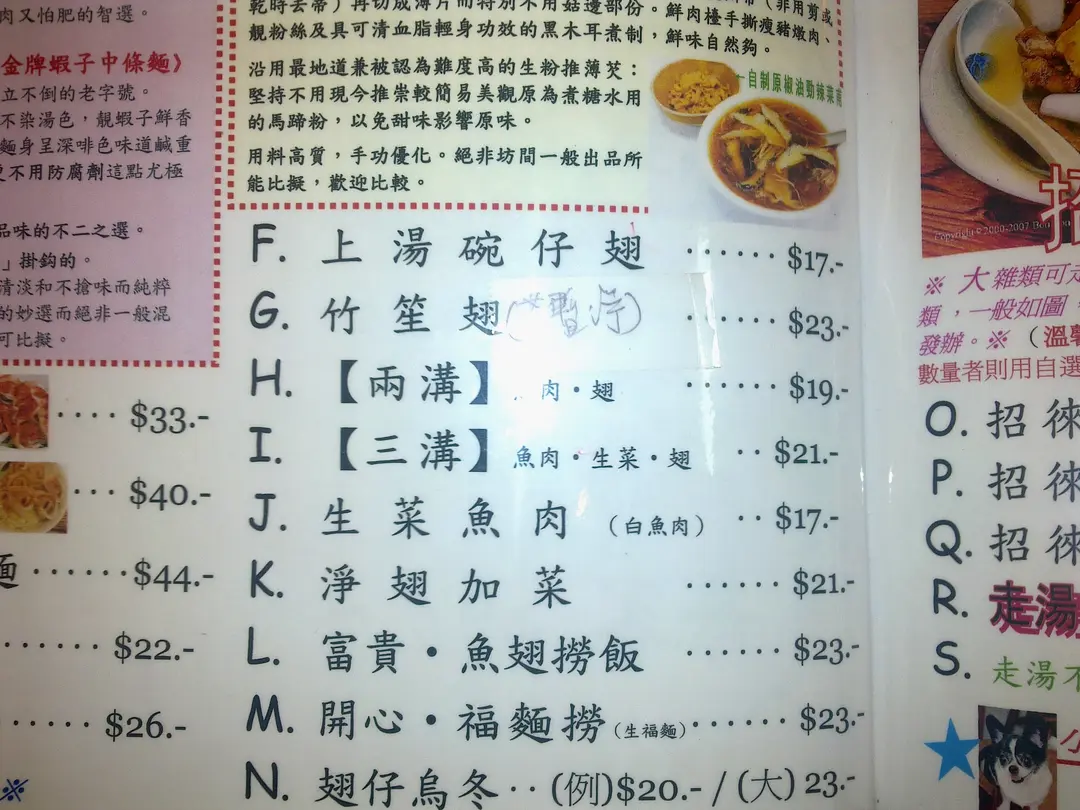 肉又怕肥的智選。
金牌蝦子中條麵》
立不倒的老字號。
不染湯色，靚蝦子鮮香
麵身呈深啡色味道鹹重
更不用防腐劑這點尤極
品味的不二之選。
」掛鈎的。
清淡和不搶味而純粹
的妙選而絕非一般混
可比擬。
···· $33.-
··· $40.-
麵 ······$44.-
······ $22.-
····· $26.-
※
乾時去蒂）再切成薄片而特別不用菇邊部份。
（非用剪或
靚粉絲及具可清血脂輕身功效的黑木耳煮制，鮮味自然夠。
鮮肉檯手撕瘦豬燉肉、
沿用最地道兼被認為難度高的生粉推薄芡：
堅持不用現今推崇較簡易美觀原為煮糖水用
的馬蹄粉，以免甜味影響原味。
用料高質，手功優化。絕非坊間一般出品所
能比擬，歡迎比較。
自制原椒油勁辣菜
F. 上湯碗仔翅 ······ $17.-
G. 竹笙翅 (暫停) ······ $23.-
H. 【兩溝】 肉·翅 ······ $19.-
I. 【三溝】 魚肉·生菜·翅 ·· $21.-
J. 生菜魚肉 （白魚肉） ·· $17.-
K. 淨翅加菜 ······ $21.-
L. 富貴·魚翅撈飯 ······ $23.-
M. 開心·福麵撈 (生福麵)······ $23.-
N. 翅仔烏冬·· (例)$20.- / (大) 23.-
Copyright © 2000-2007
招
※ 大雜類可走
類，一般如圖
發辦。※（溫馨
數量者則用自選
O. 招徠
P. 招徠
Q. 招徠
R. 走湯
S. 走湯不
小